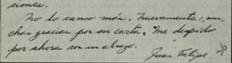 ciones.
No lo canso más. Nuevamente, mu-
chas gracias por su carta. Me despido
por ahora con un abrazo.
Juan Felipe.